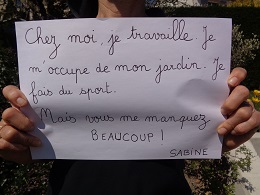 Chez moi, je travaille. Je
m'occupe de mon jardin. Je
fais du sport.
Mais vous me manquez
BEAUCOUP !
SABINE